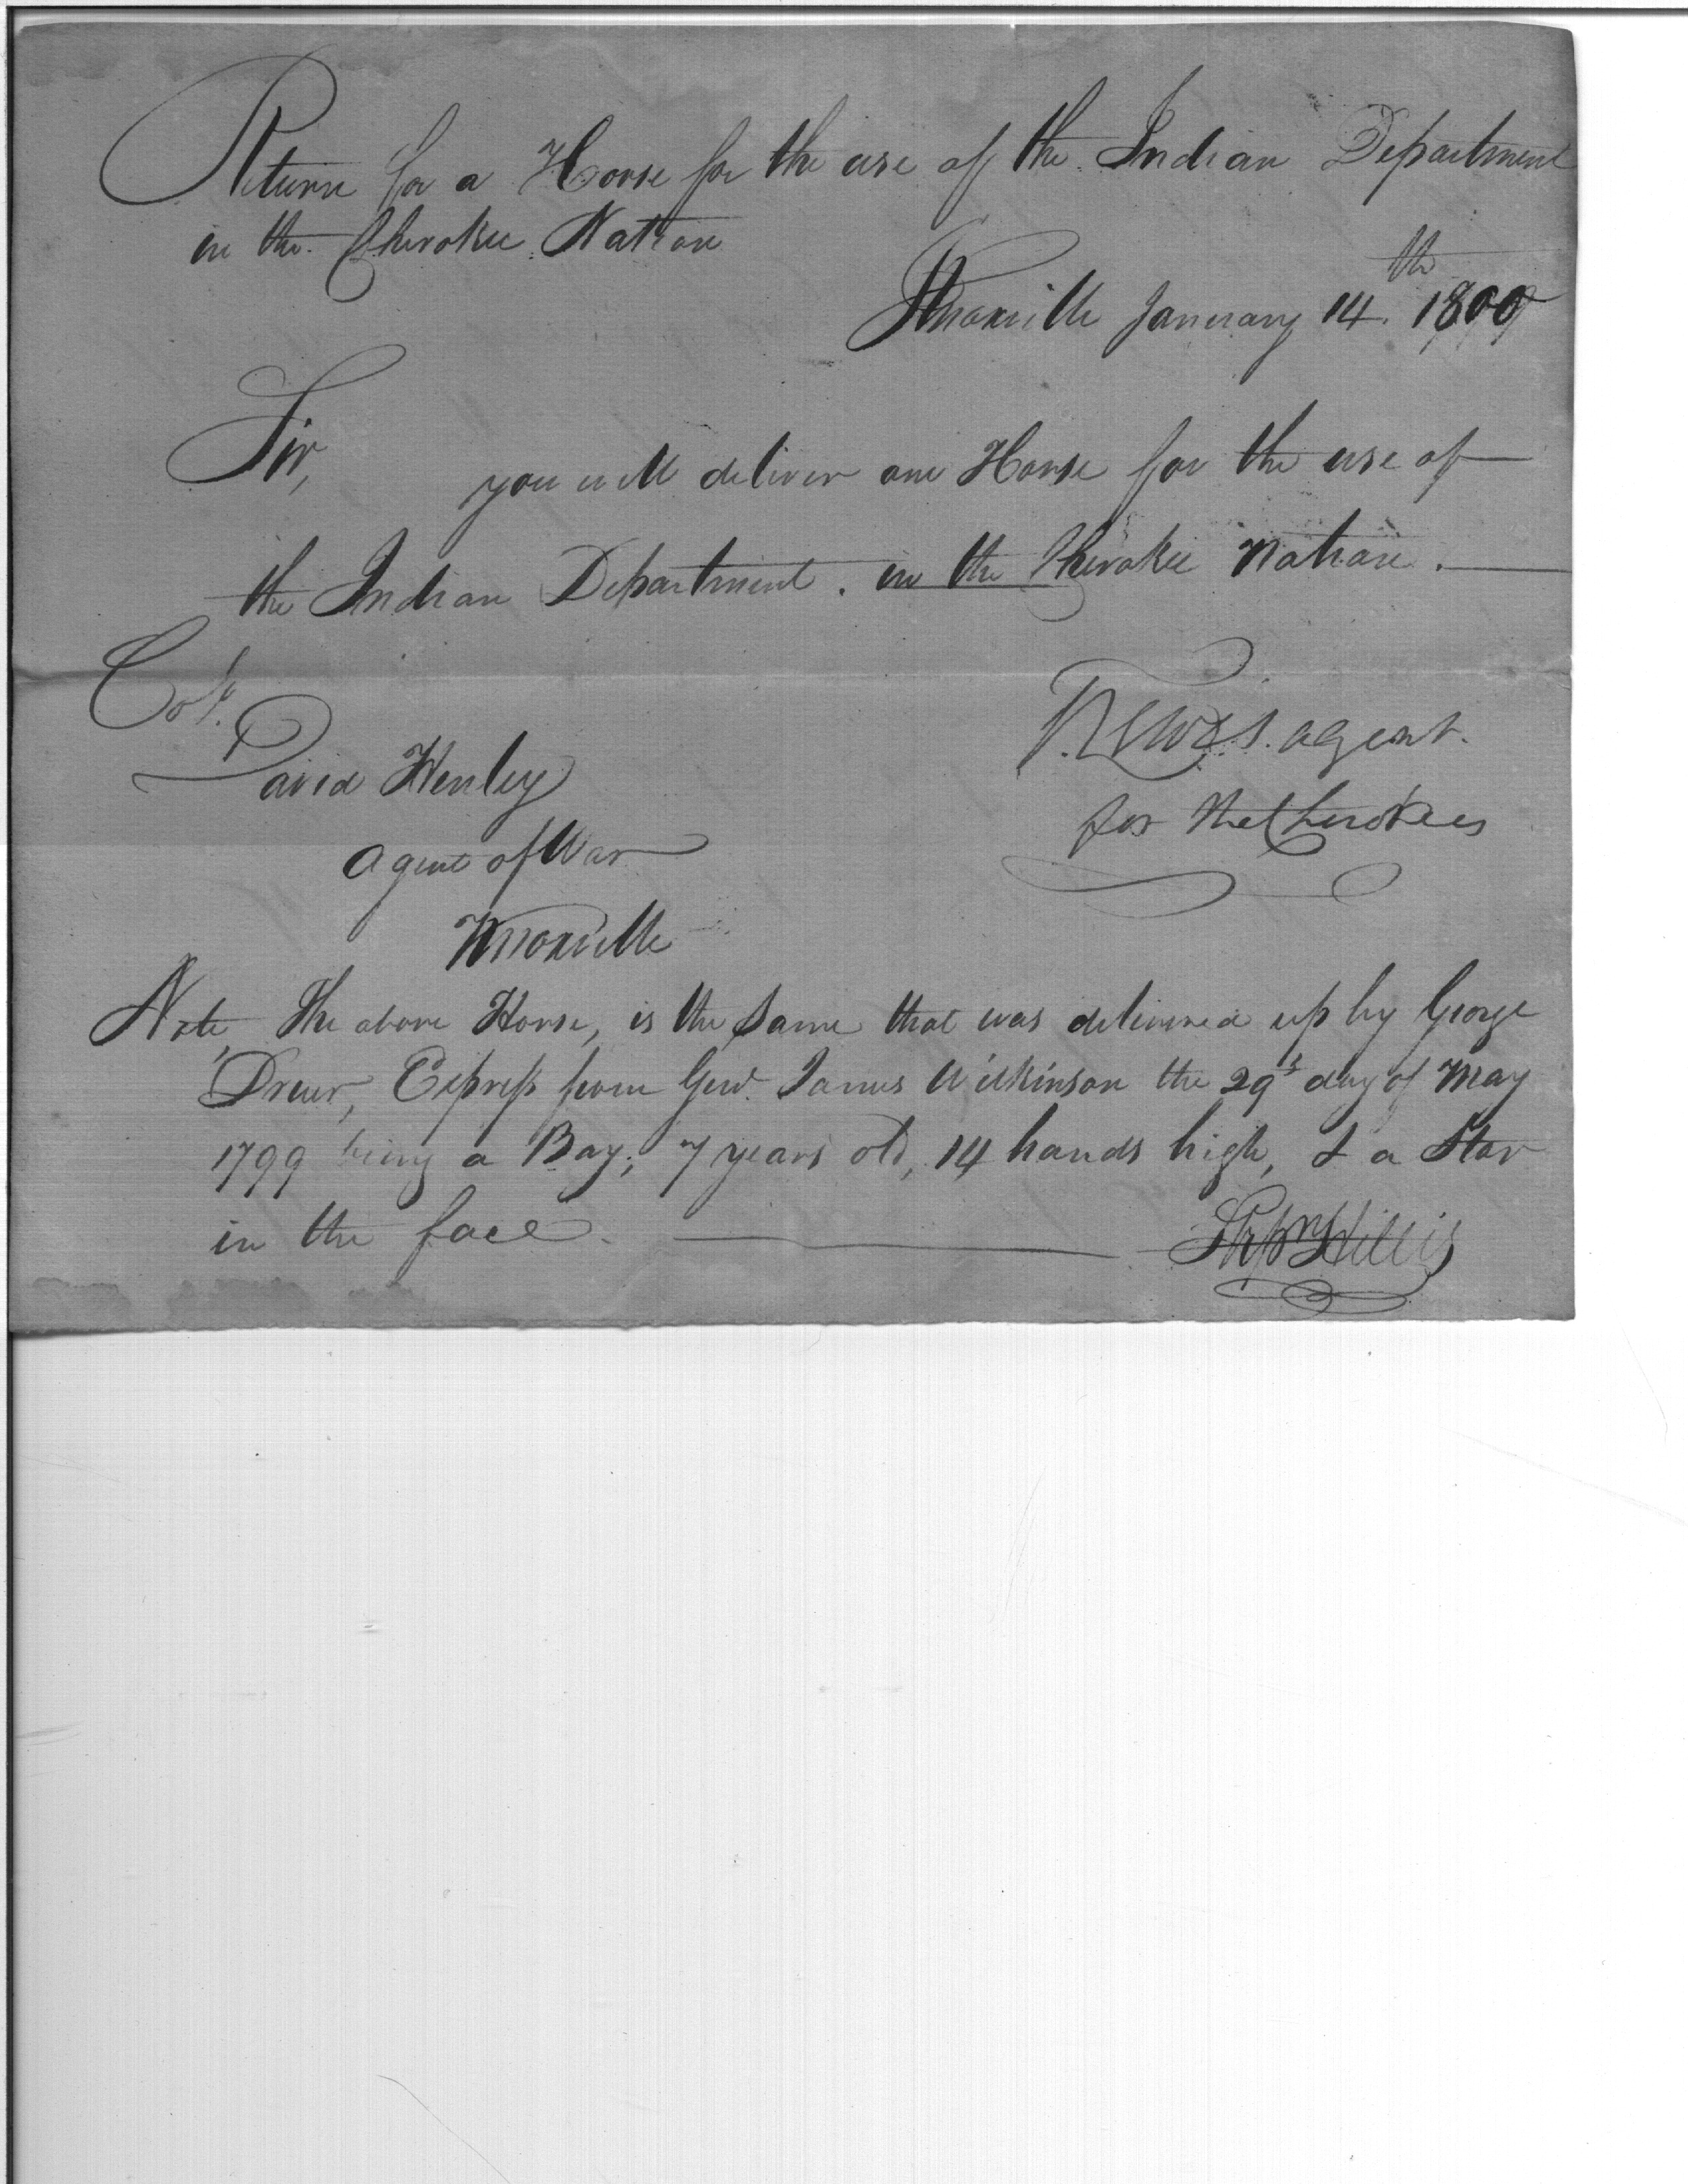 Return for a Horse for the use of the Indian Department
in the Cherokee Nation
Knoxville January 14th. 1800
Sir,
you will deliver one Horse for the use of
the Indian Department. in the Cherokee Nation.
Col.
David Henley
Agent of War
Knoxville
Lewis. agent.
for the Cherokees
Note, The above Horse, is the Same that was delivered up by George
Drew, Express from Genl. James Wilkinson the 29 day of May
1799 being a Bay; 7 years old, 14 hands high, & a Star
in the face.
Stepn Hillis